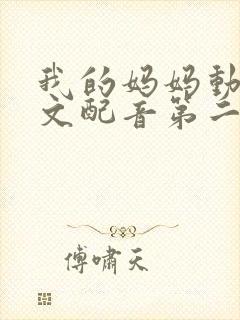 我的妈妈動
文配音第二
傅嘯天